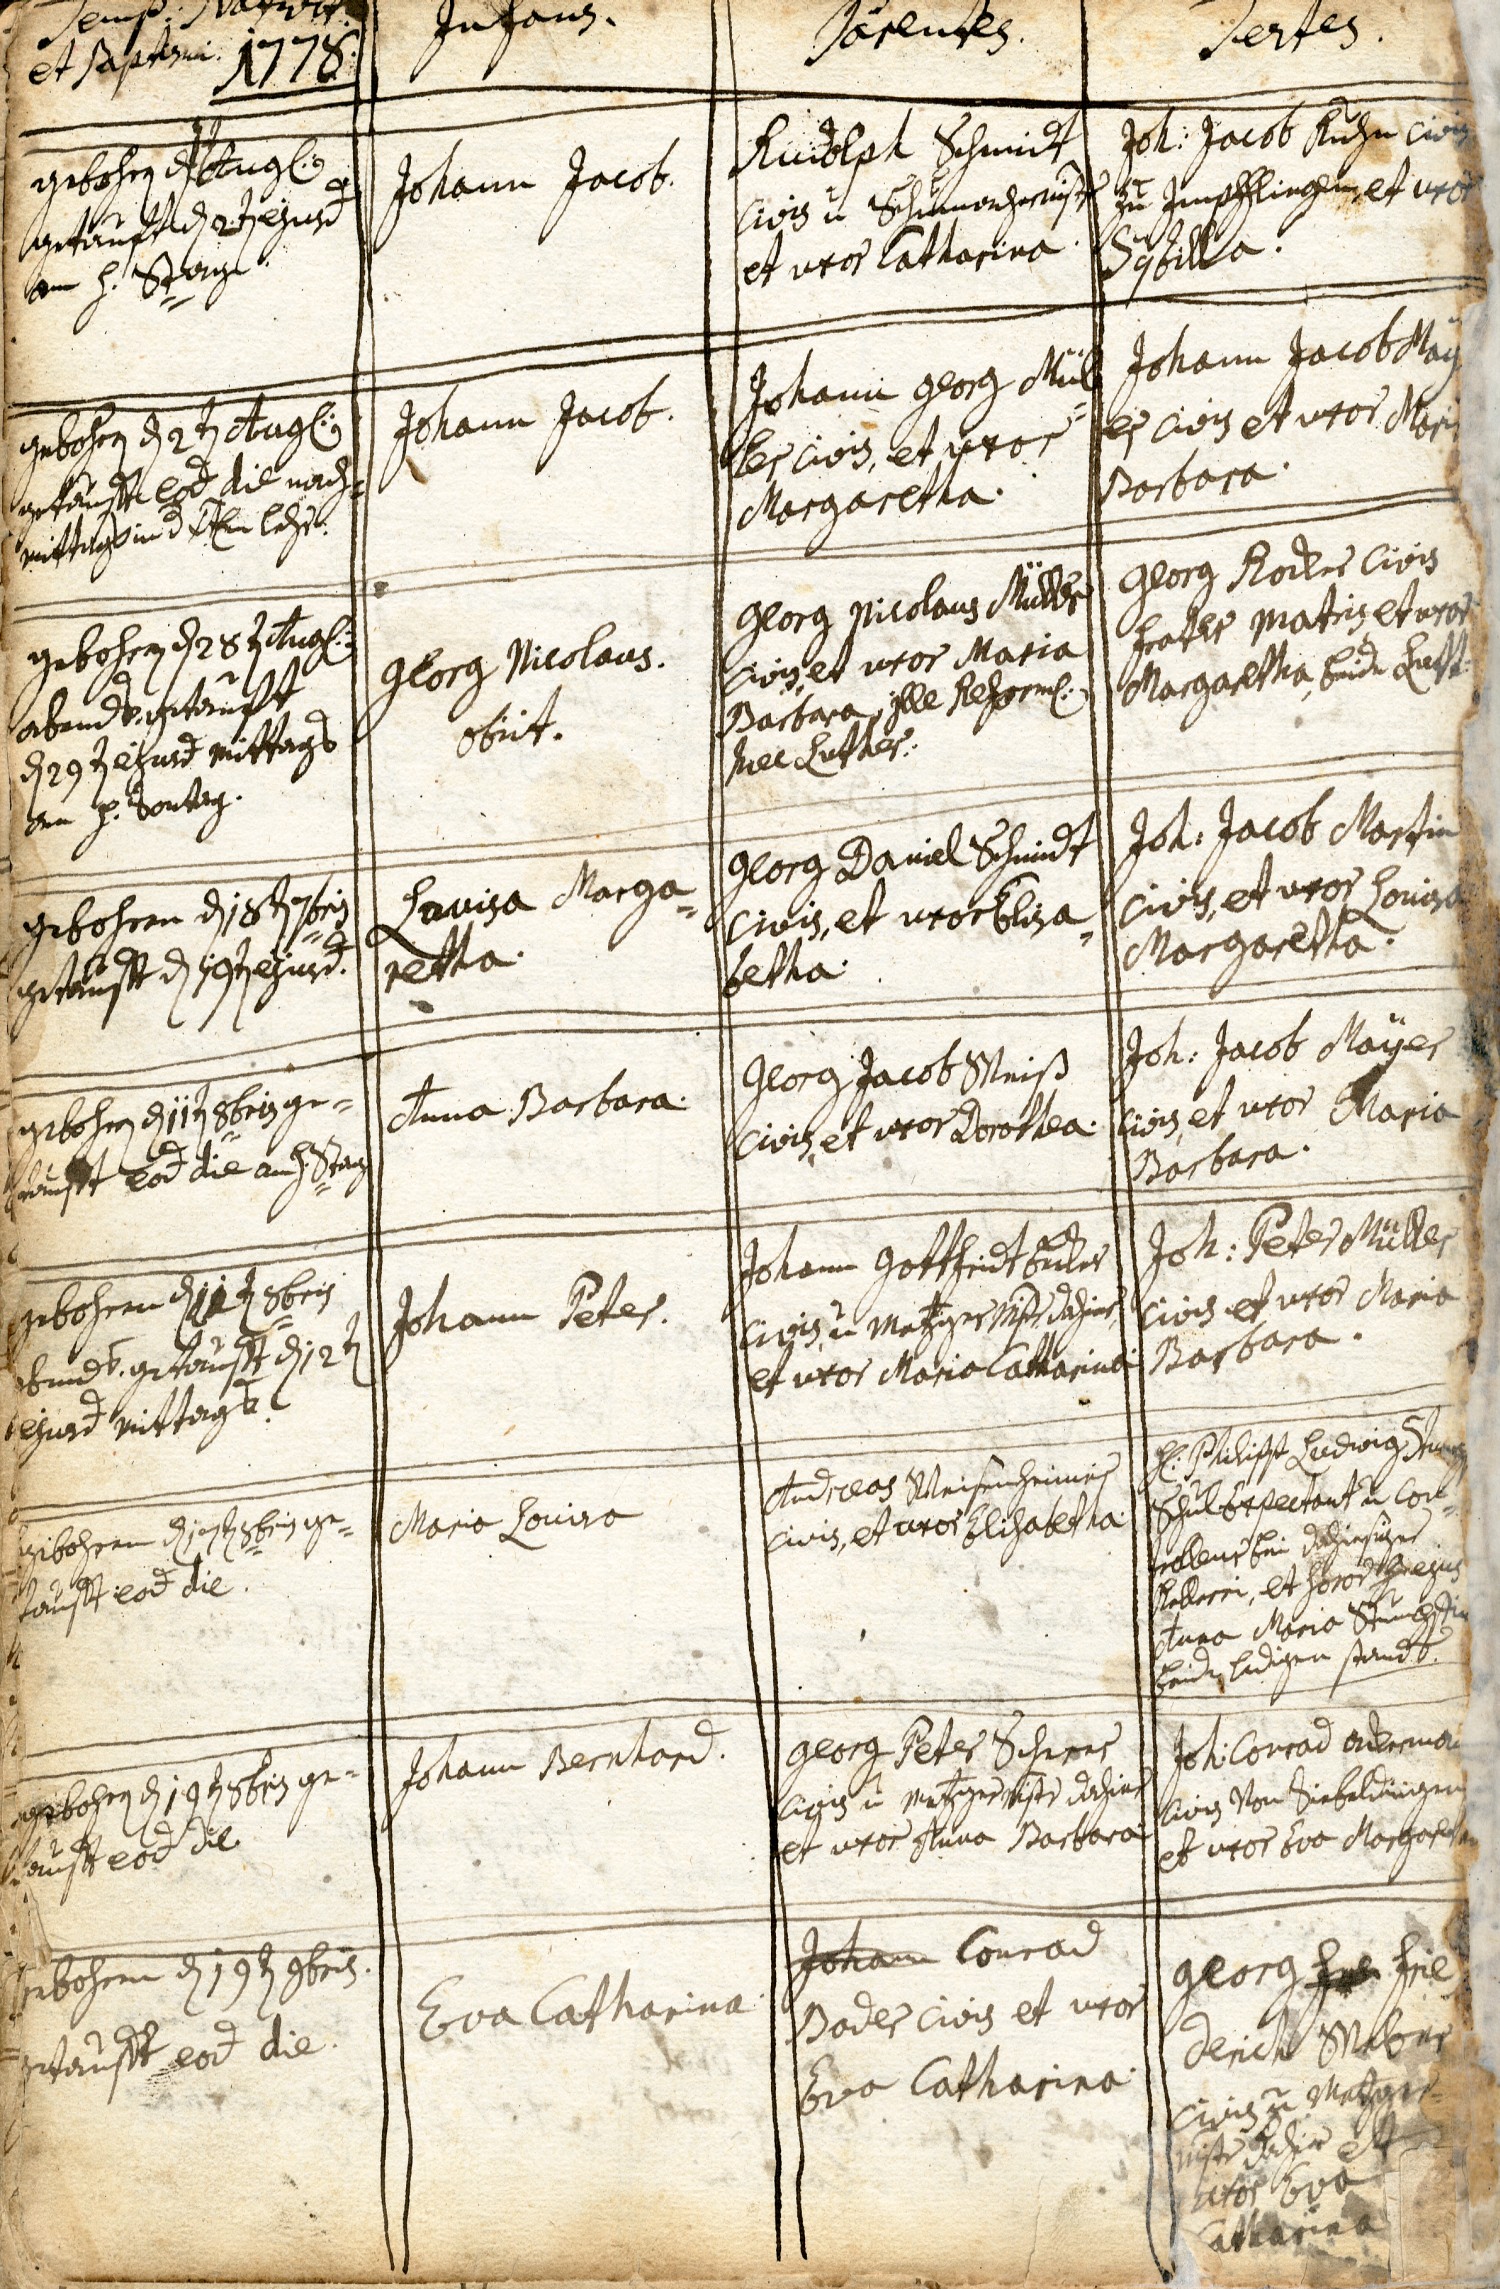 Temp: Nativit:
et Baptismi. 1778.
Infans.
Parentes.
Testes.
gebohren d. Augl:
getauft d. 2t. ejusd
am h. Stag.
Johann Jacob.
Rudolph Schmidt
civis u. Schumachermstr
et uxor Catharina
Joh: Jacob Kuhn civis
zu Impfflingen, et uxor
Sybilla.
gebohren d. 2t. Augl:
getauft eod die nach=
mittags in d.
Johann Jacob.
Johann Georg Mül=
ler civis, et uxor
Margaretha.
Johann Jacob May
er civis et uxor Maria
Barbara.
gebohren d. 28t. Augl:
abends. getauft
d. 29t. ejusd mittags
am h. Sontag.
Georg Nicolaus.
obiit.
Georg Nicolaus Müller
civis, et uxor Maria
Barbara, ille Reforml:
haec Luther:
Georg civis
frater matris et uxor
Margaretha, beide Luth:
gebohren d. 18t. 7bris
getauft d. 19t. ejusd.
Lovisa Marga=
retha.
Georg Daniel Schmidt
civis, et uxor Elisa=
betha.
Joh: Jacob Martin
civis, et uxor Lovisa
Margaretha.
gebohren d. 11t. 8bris ge=
tauft eod die am h. Stag
Anna Barbara.
Georg Jacob Weiß
civis, et uxor Dorothea.
Joh: Jacob Mayer
civis, et uxor Maria
Barbara.
gebohren d. 11t. 8bris
abends. getauft d. 12t.
ejusd mittags.
Johann Peter.
Johann Gottfridt
civis, u. Metzgermstr dahier,
et uxor Maria Catharina
Joh: Peter Müller
civis et uxor Maria
Barbara.
gebohren d. 17t. 8bris ge=
tauft eod die.
Maria Lovisa
Andreas Weisenheimer
civis, et uxor Elisabetha.
H: Philipp Ludwig
u. Con=
bei dahiesiger
Kellerei, et soror ejus
Anna Maria
beide ledigen stands.
gebohren d. 19t. 8bris ge=
tauft eod die
Johann Bernhard.
Georg Peter Scherer
civis u. Metzgermstr dahier
et uxor Anna Barbara
Joh: Conrad
civis von Siebeldingen
et uxor Eva Margaretha
gebohren d. 19t. 9bris.
getauft eod die.
Eva Catharina
Johann Conrad
Bader civis et uxor
Eva Catharina.
Georg Frie
derich Weber
civis u. Metzger=
mstr dahier et
uxor Eva
Catharina